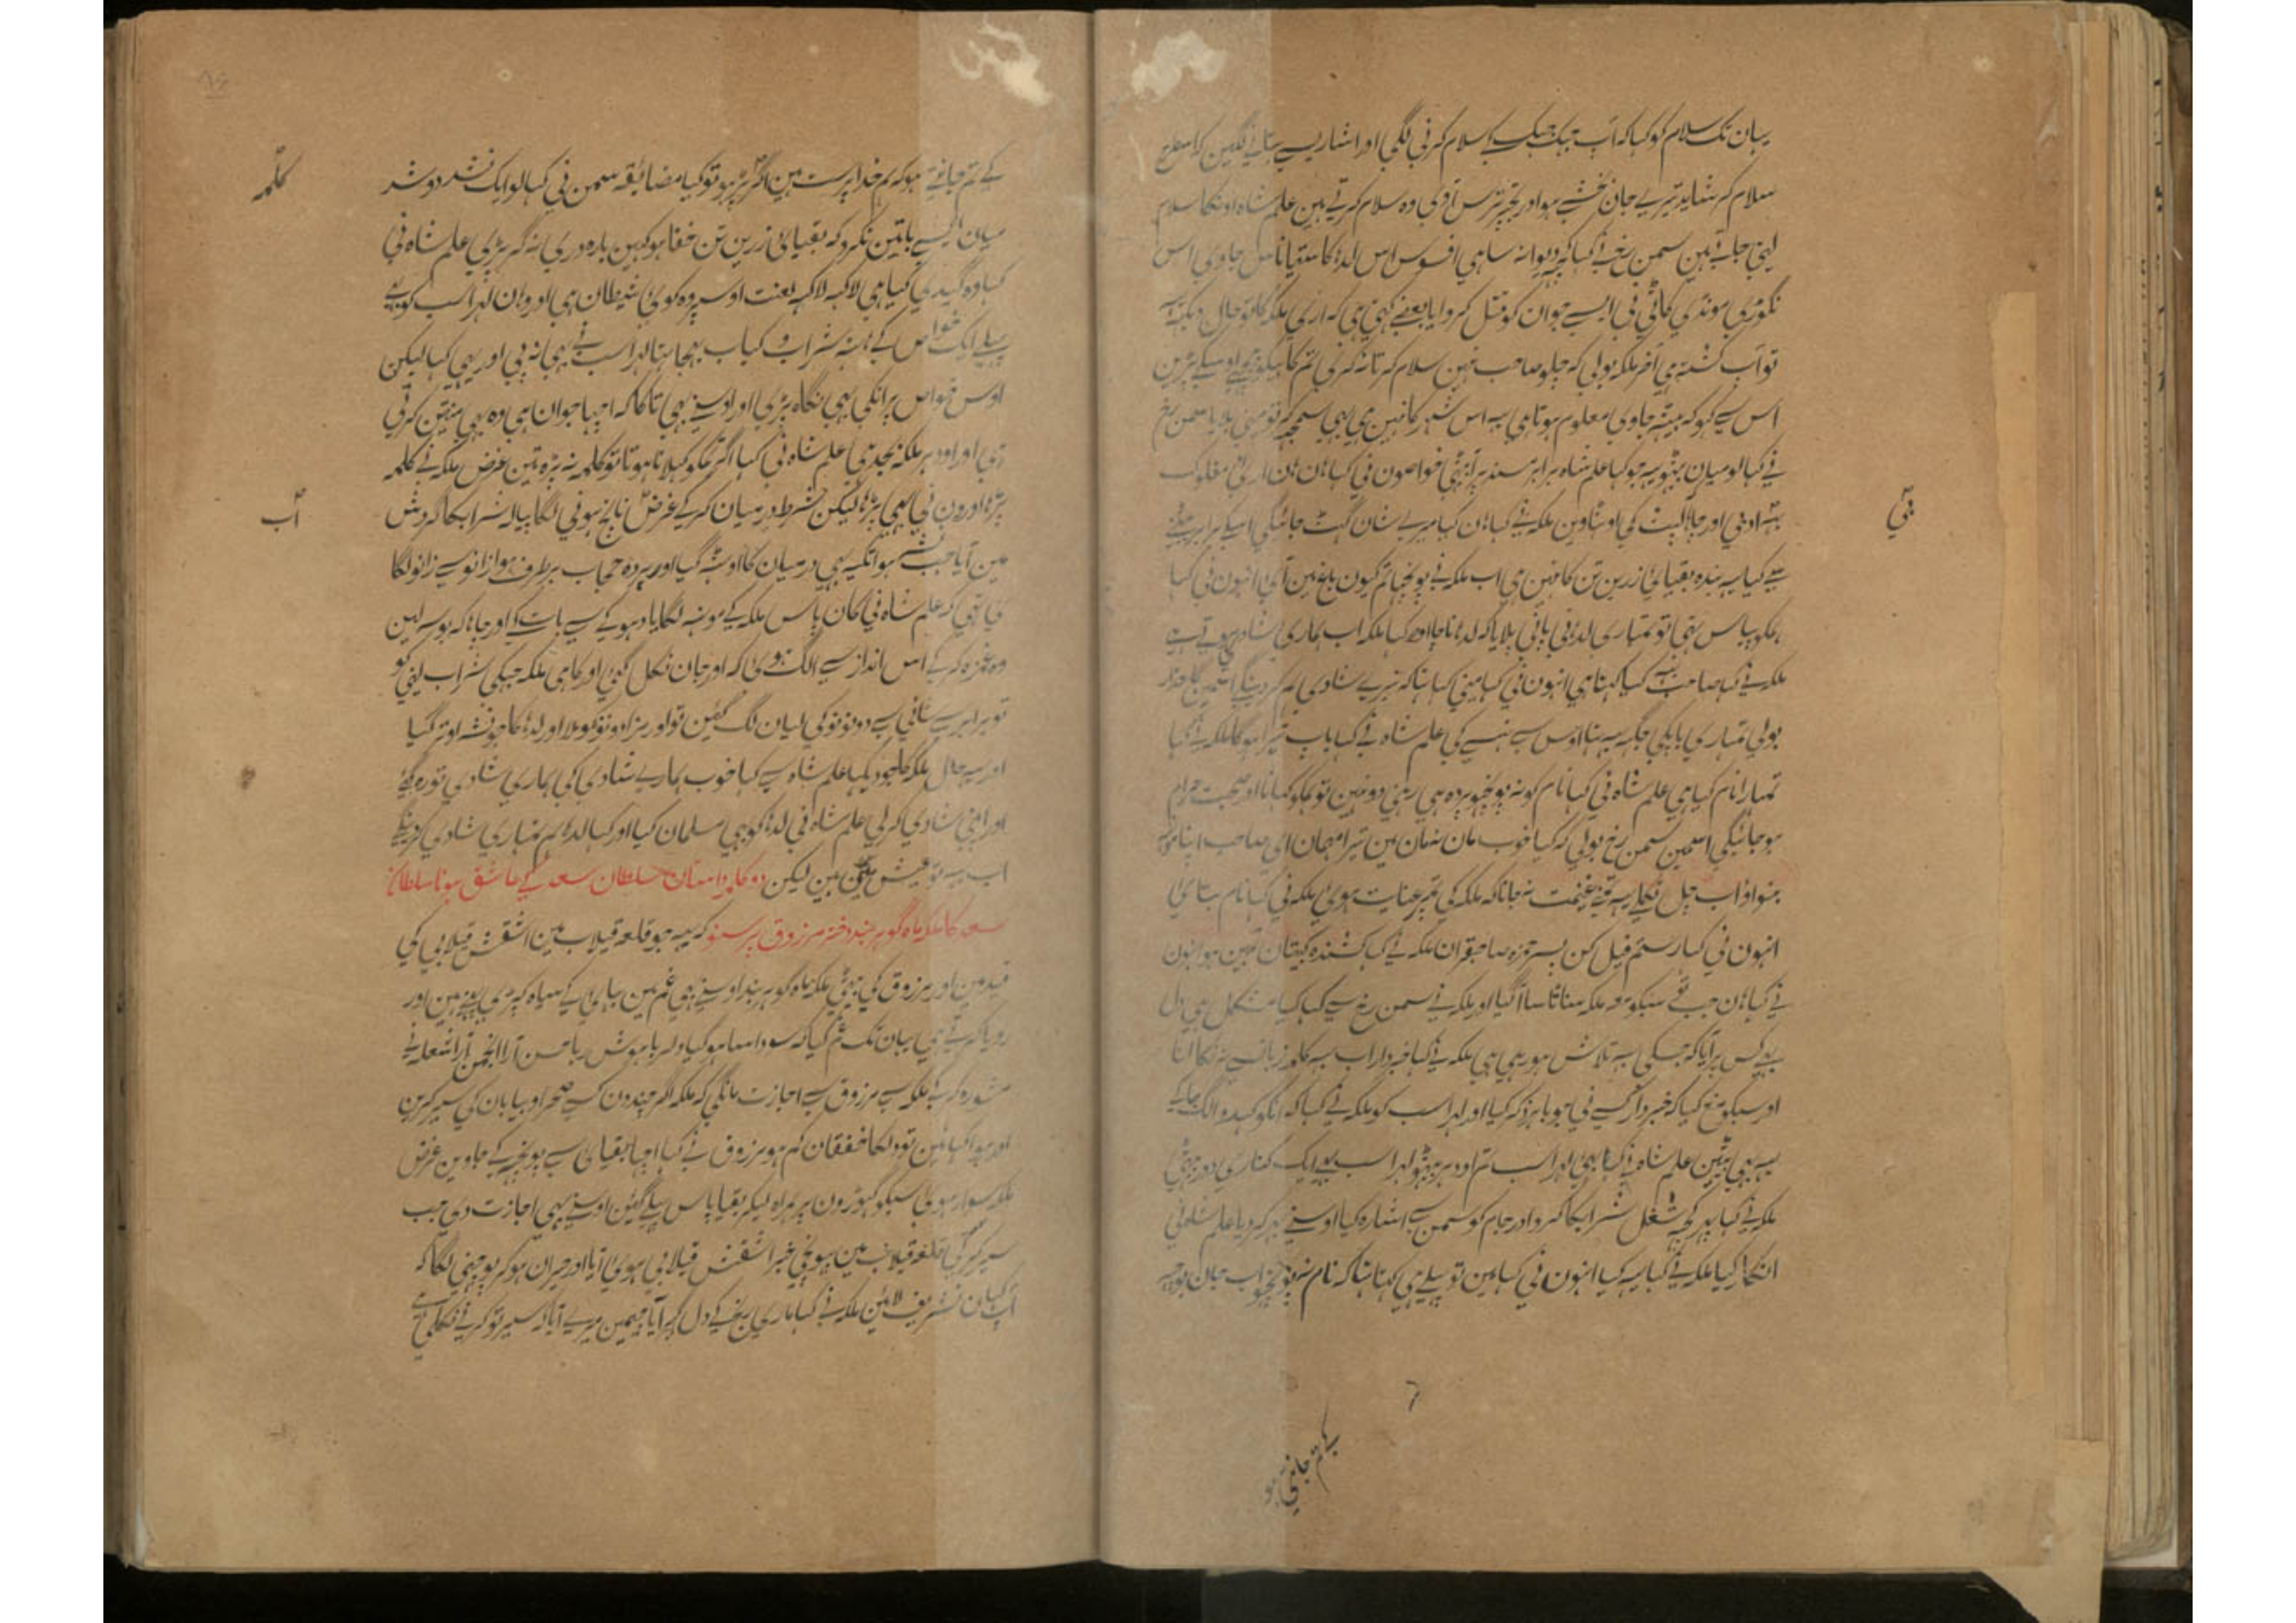 یہان تک سلام کو کہا کہ آپ جہک جہک کے سلام کرنی لگی اور اشاریسے بتانے لگین کہ اسطرح
سلام کر شاید تیرے جان بخشے ہو اور تجہپر ترس آوی وہ سلام کرتے ہین علم شاہ اونکا سلام
لیتی جاتے ہین سمن رخ نے کہا کہ یہ دیوانہ ساہی افسوس اس لدہا کا ستیاناس جاوی اس
نگوڑی مونڈی کاٹی نی ایسے جوان کو قتل کروایا بعضے کہتی ہی کہ اری ملکہ کا تو حال دیکہہ
تو آپ کشتہ ہی آخر ملکہ بولی کہ چلو صاحب نہین سلام کرتا نہ کری تم کاہیکو
اس سے کہو کہ بیٹہہ جاوی معلوم ہوتا ہی یہ اس شہر کا نہین ہی یہی سمجہکے تو مینی بلایا سمن رخ
نے کہا لو میان بیٹہو یہ جو کہا علم شاہ برابر مسند پر آ بیٹہی خواصون نی کہا ہان ہان اری مفلوک
بی
بے ادبی اور چاہا کہ اوٹہاوین ملکہ نے کہا ہان کیا میرے شان گہٹ جائیگی اسکے برابر بیٹہنے
سے کیا یہ بندہ بقیائی زرین تن کا نہین ہی اب ملکہ نے پوچہا تم کیون باغ مین آئی انہون نی کہا
ہمکو پیاس تہی تو تمہاری لدہا نی پانی پلایا کہ لدہا ناچا اوٹہا کہا ملکہ اب ہماری شادی ہوتے ہے
ملکہ نے کہا صاحب یہ کیا کہتا ہی انہون نی کہا مینی کہا تہا کہ تیرے شادی ہم کردینگے اسمین
بولی تمہاری باپکی جگہہ یہ تہا اوس سے ہنسے کی علم شاہ نے کہا باپ تیرا ہوگا ملکہ نے کہا
تمہارا نام کیا ہی علم شاہ نی کہا نام کو نہ پوچہو پردہ ہی رہنی دو نہین تو ہمکو کہانا اور صحبت حرام
ہوجائیگی اسمین سمن رخ بولی کہ کیا خوب مان نہ مان مین تیرا مہمان ای صاحب اپنا
بنواؤ اب چل نکلے یہ تمنے غنیمت نہ جانا کہ ملکہ کی تمپر عنایت ہوئی ملکہ نی کہا نام بتائی
انہون نی کہا رستم فیل کن پسر حمزہ صاحبقران ملکہ نے کہا کشندہ کپیتان تمہین ہو انہون
نے کہا ہان جب تو سبکو مع ملکہ سناٹا سا آگیا اور ملکہ نے سمن رخ سے کہا کیا مشکل ہی دل
یہ کس پر آیا کہ جسکی یہ تلاش ہو رہی ہی ملکہ نے کہا خبردار اب یہ کلمہ زبانسے نہ نکالنا
اور سبکو منع کیا کہ خبردار کسے نی جو باہر ذکر کیا اور لہراسب کو ملکہ نے کہا کہ انکو کہدو الگ جاکے
یہہ بہی بیٹہین علم شاہ نے کہا بہائی لہراسب تم اودہر بیٹہو لہراسب یہ ایک کناری دور بیٹہی
ملکہ نے کہا پہر کچہہ شغل شرابکا کرو اور جام کو سمن سے اشارہ کیا اوسنے بہر کر دیا علم شاہ نی
انکار کیا ملکہ نے کہا یہ کیا انہون نی کہا مین تو پہلے ہی کہتا تہا کہ نام نہ پوچہو اب جان بوجہہ
کے تم جانتی ہو
کے تم جانتے ہو کہ ہم خدا پرست ہین اگر کلمہ پڑہو تو کیا مضائقہ سمن نی کہا لو ایک نشد دو شد
کلمہ
میان ایسے باتین نکرو کہ بقیائی زرین تن خفا ہو کہین بارہ دری نہ گر پڑی علم شاہ نی
کہا وہ گیدی کیا ہی لاکہہ لاکہہ لعنت اوسپر وہ کوئی شیطان ہی اور وہان لہراسب کو بہی
پہلے ایک خواص کے ہاتہہ شراب و کباب بہیجا تہا لہراسب نے بہی نہ پی اور یہی کہا لیکن
اوس خواص پر انکی بہی نگاہ پڑی اور اوسنے بہی تاکا کہ اچہا جوان ہی وہ بہی منتین کرتی
رہی اور اودہر ملکہ بجد ہی علم شاہ نی کہا اگر ہمکو پلانا ہو تا تو کلمہ نہ پڑہتین غرض ملکہ نے کلمہ
پڑہا اورون نی بہی پڑہا لیکن شرط درمیان کرکے غرض ناچ ہونی لگا پیالہ شرابکا گردش
آب
مین آیا جب نشہ ہوا تکیہ بہی درمیان کا اوٹہہ گیا اور پردہ حجاب برطرف ہوا زانو سے زانو لگا
ہی تہی کہ علم شاہ نی کان پاس ملکہ کے مونہہ لگایا دہوکے سے بات کے اور چاہا کہ بوسہ لین
وہ غمزہ کرکے اس انداز سے الگ ہوئی کہ اور جان نکل گئی اور کا ہی ملکہ جہکی شراب لینی کو
تو برابر سے سانی سے دونونکی لبان لگ گئین تو اور مزا دونونکو ملا اور لدہا کا جو نشہ اوتر گیا
اور یہ حال ملکہ کا جو دیکہا علم شاہ سے کہا خوب ہمارے شادی کی ہماری شادی تو رہ گئی
اور اپنی شادی کرلی علم شاہ نی لدہا کو بہی مسلمان کیا اور کہا لدہا ہم تمہاری شادی کرینگے
اب یہ تو عیش مین ہین لیکن دو کلمہ داستان سلطان سعد کے عاشق ہونا سلطان
سعد کا ملکہ ماہ گوہر بند دختر مرزوق پر سنو کہ یہ جو قلعہ قیلاب مین اشقش قیلابی کی
قید مین اور مرزوق کی بیٹی ملکہ ماہ گوہر بند اوسنے بہی غم مین بہائی کے سیاہ کپڑی پہنے ہین اور
رویا کرتے ہی یہان تک غم کیا کہ سودا سا ہو گیا دلربا ہوش ربا حسن آرا انجمن آرا شعلہ نے
مشورہ کرکے ملکہ سے مرزوق سے اجازت مانگی کہ ملکہ اگر چند دن کسے صحرا و بیابان کی سیر کرین
اور ہوا کہائین تو دلکا خفقان کم ہو مرزوق نے کہا اچہا بقیائی سے پوچہہ کے جاوین غرض
ملکہ سوار ہوئی سبکو گہوڑون پر ہمراہ لیکر بقیا پاس چلے گئین اوسنے بہی اجازت دی جب
سیر کرتی قلعہ قیلاب مین پہونچی خبر اشقش قیلابی ہوئی آیا اور حیران ہوکر پوچہنی لگا کہ
آپ کہان تشریف لائین ملکہ نے کہا ماری رنج کے دل گہرا آیا جیمین میرے آیا کہ سیر تو کرنے نکلے